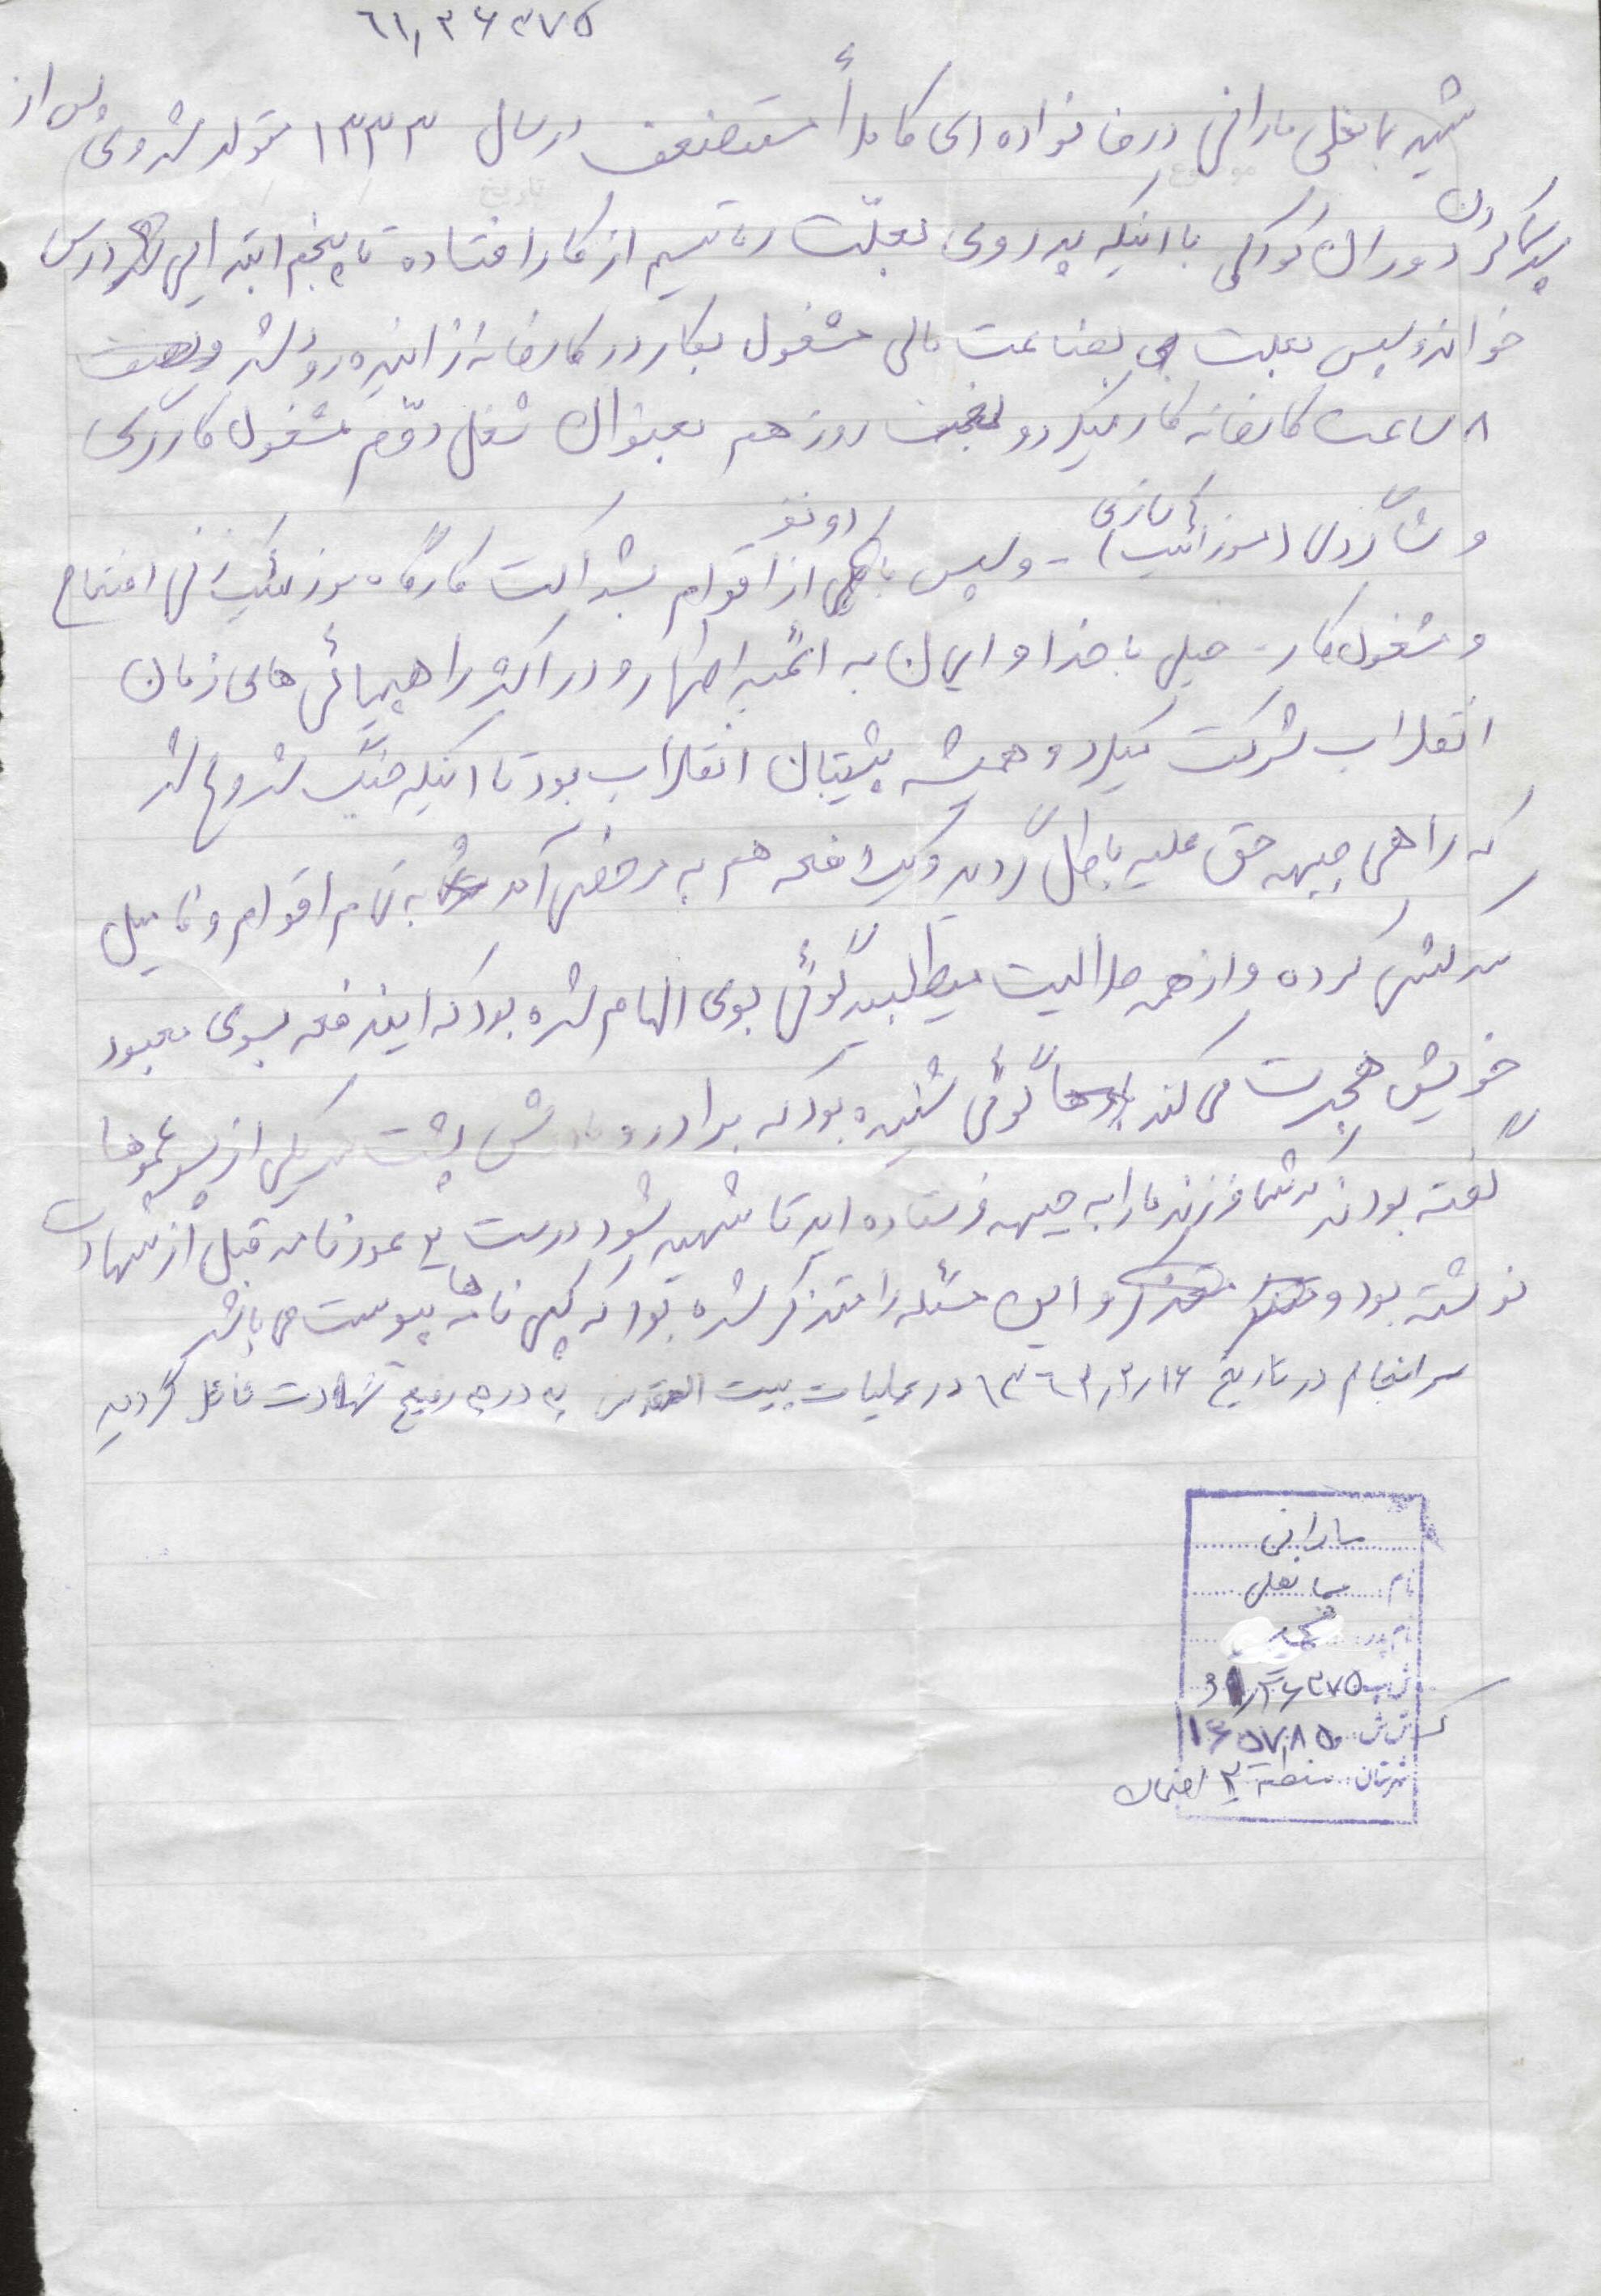 ۶۱,۲۶۳۷۵
شهید بمانعلی مارانی در خانواده ای کاملاً مستضعف در سال ۱۳۳۳ متولد شد وی پس از
سپری کردن دوران کودکی با اینکه پدر وی بعلّت رماتیسم از کار افتاده تا پنجم ابتدایی درس
خواند و سپس بعلت بی بضاعت مالی مشغول بکار در کارخانه شد
۸ ساعت کارخانه کار میکرد و روز هم بعنوان شغل دوّم مشغول کارگری
و شاگردی (موزائیک سازی) - و سپس با دو نفر از اقوام بشراکت کارگاه موزائیک زنی افتتاح
و مشغول بکار - خیلی با خدا و ایمان به ائمّه اطهار و در اکثر راهپیمائی های زمان
انقلاب شرکت میکرد و همیشه پشتیبان انقلاب بود تا اینکه جنگ شروع شد
که راهی جبهه حق علیه باطل گردید و یکدفعه هم به مرخصی آمد به تمام اقوام و فامیل
سرکشی کرده و از همه حلالیت میطلبید گوئی بوی الهام شده بود که ایندفعه بسوی معبود
خویش هجرت می کند گوئی شنیده بود که برادر و پشت سر یکی از پسر عموها
گفته بودند که شما فرزند ما را به جبهه فرستاده اید تا شهید بشود درست ۲ عدد نامه قبل از شهادت
نوشته بود و این مسئله را متذکر شده بود که کپی نامه ها پیوست می باشد
سرانجام در تاریخ ۱۳۶۱,۲,۱۶ در عملیات بیت المقدس به درجه رفیع شهادت نائل گردید
مارانی
نام: بمانعلی
نام پدر:
۲۶۳۷۵
ش ش ۱۶۵۷۸۵
شهرستان: منطقه ۲ اصفهان